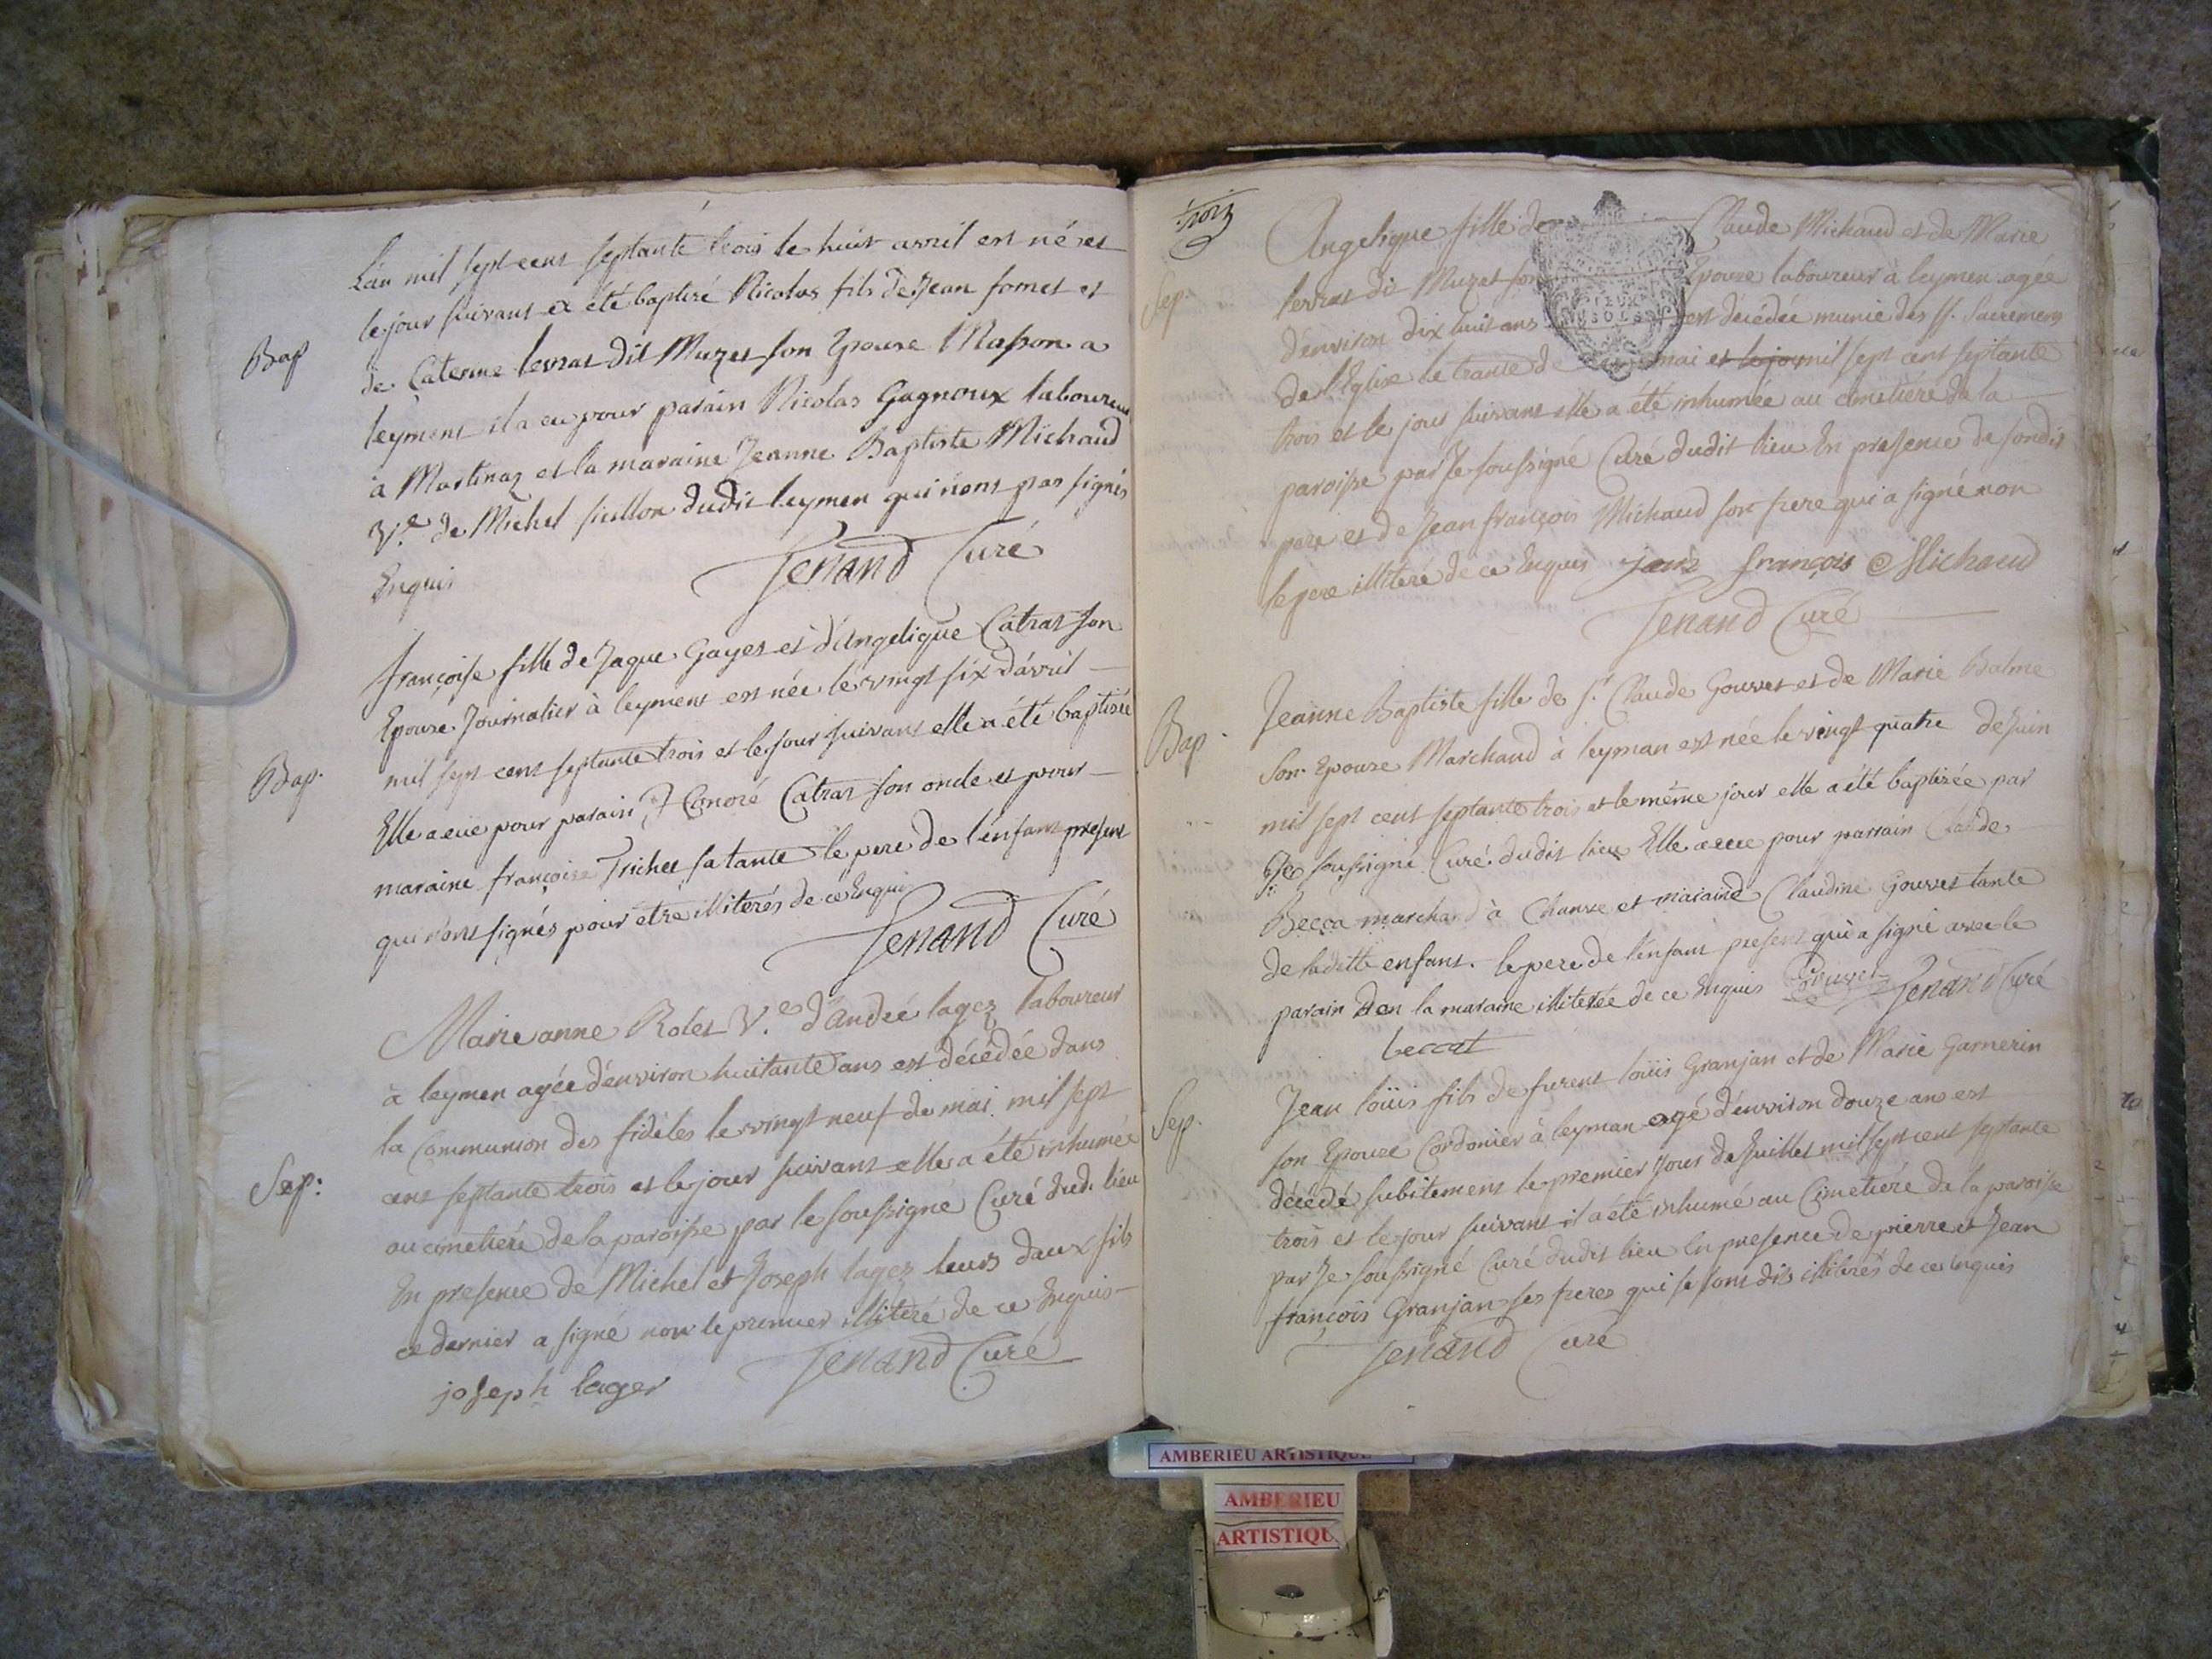 L'an mil sept cent septante trois le huit avril est né et
le jour suivant a été baptisé Nicolas fils de Jean fornet et
Bap
de Caterine levrat dit Muzet son Epouse Masson a
leyment il a eu pour parain Nicolas Gagnoux laboureur
à Martinaz et la maraine Jeanne Baptiste Michaud
V.e de Michel dudit leymen qui n'ont pas signés
Enquis
Jenand Curé
françoise fille de Jaque Gayet et d'Angelique Catras son
Epouse Journalier à leyment est née le vingt six d'avril
Bap.
mil sept cent septante trois et le jour suivant elle a été baptisée
Elle a eue pour parain Honoré Catras son oncle et pour
maraine françoise Trichet sa tante le pere de l'enfant present
qui n'ont signés pour etre illiterés de ce Enquis
Jenand Curé
Marie anne Rolet V.e d'André lagez laboureur
à leymen agée d'environ huitante ans est décédée dans
la Communion des fidèles le vingt neuf de mai mil sept
Sep:
cent septante trois et le jour suivant elle a été inhumée
au cimetiére de la paroisse par le soussigné Curé dud. lieu
En presence de Michel et Joseph lagez leurs deux fils
ce dernier a signé non le premier illiteré de ce Enquis
Jenand Curé
joseph lager
trois
Angelique fille de Claude Michaud et de Marie
Sep.
levrat dit Muzet son Epouse laboureur à leymen agée
d'environ dix huit ans est décédée munie des SS. Sacremens
de l'Eglise le trante de mai et le jour mil sept cent septante
trois et le jour suivant elle a été inhumée au cimetiére de la
paroisse par Je soussigné Curé dudit lieu En presence de sondit
pere et de Jean françois Michaud son frere qui a signé non
le pere illiteré de ce Enquis Jean françois Michaud
Jenand Curé
Jeanne Baptiste fille de S.r Claude Gouvet et de Marie Balme
Bap.
Son Epouse Marchand à leyman est née le vingt quatre de Juin
mil sept cent septante trois et le même jour elle a été baptisée par
Je soussigné Curé dudit lieu Elle a eue pour parrain Claude
Becca marchand à Chanve et maraine Claudine Gouvet tante
de laditte enfant. le pere de l'enfant present qui a signé avec le
parain non la maraine illiterée de ce Enquis Gouvet Jenand Curé
beccat
Jean loüis fils de furent loüis Granjan et de Marie Garnerin
Sep.
son Epouse Cordonier à leyman agé d'environ douze ans est
décédé subitement le premier Jour de Juillet mil sept cent septante
trois et le jour suivant il a été inhumé au Cimetiére de la paroisse
par Je soussigné Curé dudit lieu En presence de pierre et Jean
françois Granjan ses freres qui se sont dits illiterés de ce Enquis
Jenand Curé
AMBERIEU ARTISTIQUE
AMBERIEU
ARTISTIQU